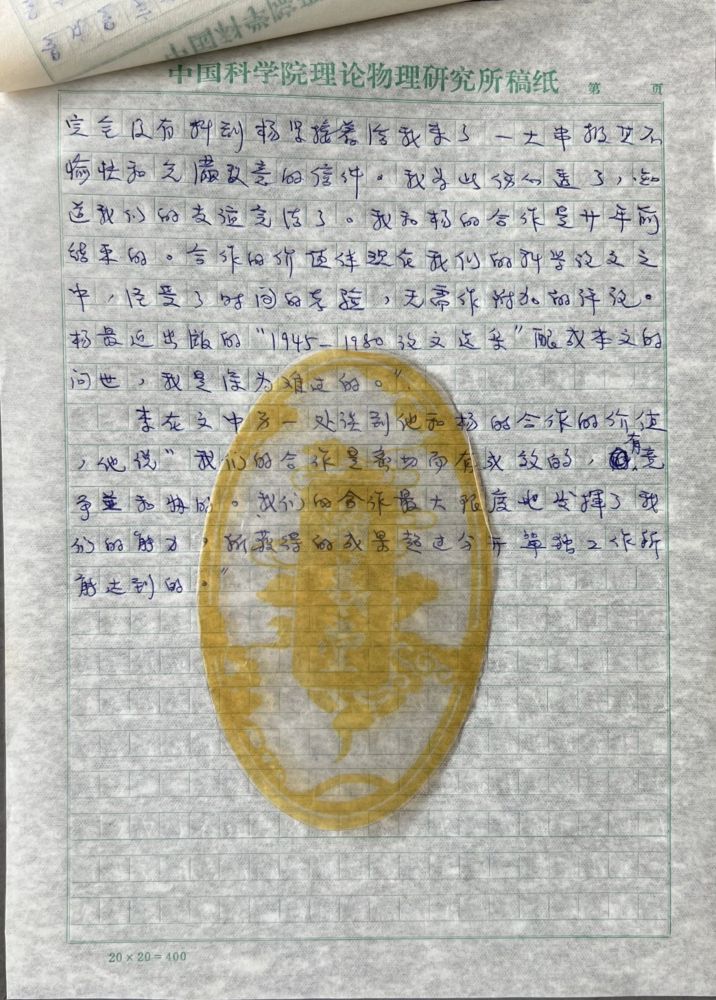 中国科学院理论物理研究所稿纸 第 页
完全没有料到杨紧接着给我来了一大串极其不
愉快和充满敌意的信件。我为此伤心透了，知
道我们的友谊完结了。我和杨的合作是廿年前
结束的。合作的价值体现在我们的科学论文之
中，经受了时间的考验，无需作附加的评论。
杨最近出版的“1945—1980论文选集”酿成本文的
问世，我是深为难过的。”
李在文中另一处谈到他和杨的合作的价值
，他说“我们的合作是密切而有成效的，有竞
争兼和协的。我们的合作最大限度地发挥了我
们的能力，所获得的成果超过分开单独工作所
能达到的。”
20×20=400